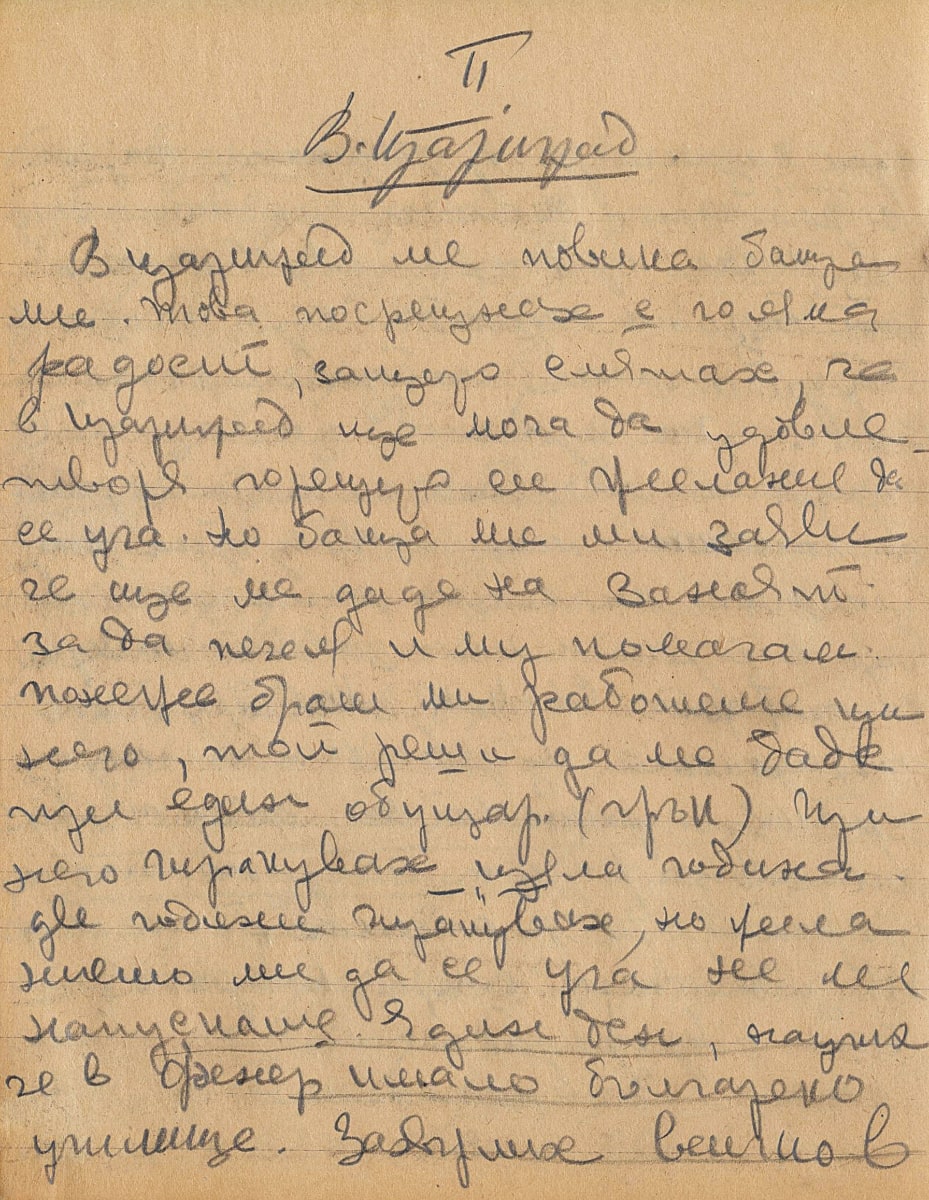 II
В Цариград
В Цариград ме повика баща
ми. Това посрещнах с голяма
радост, защото смятах, че
в Цариград ще мога да удовле-
творя горещото си желание да
се уча. Но баща ми ми заяви
че ще ме даде на занаят
за да печеля и му помагам.
понеже брат ми работеше при
него, той реши да ме даде
при един обущар. (грък) При
него чиракувах цяла година.
две години чиракувах, но жела
нието ми да се уча не ме
напускаше. Един ден, научих
че в Фенер имало българско
училище. Зарязах всичко в